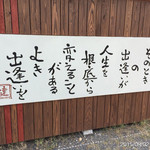 そのとき
の
出逢いが
人生を
根底から
変えること
がある
よき
出逢いを